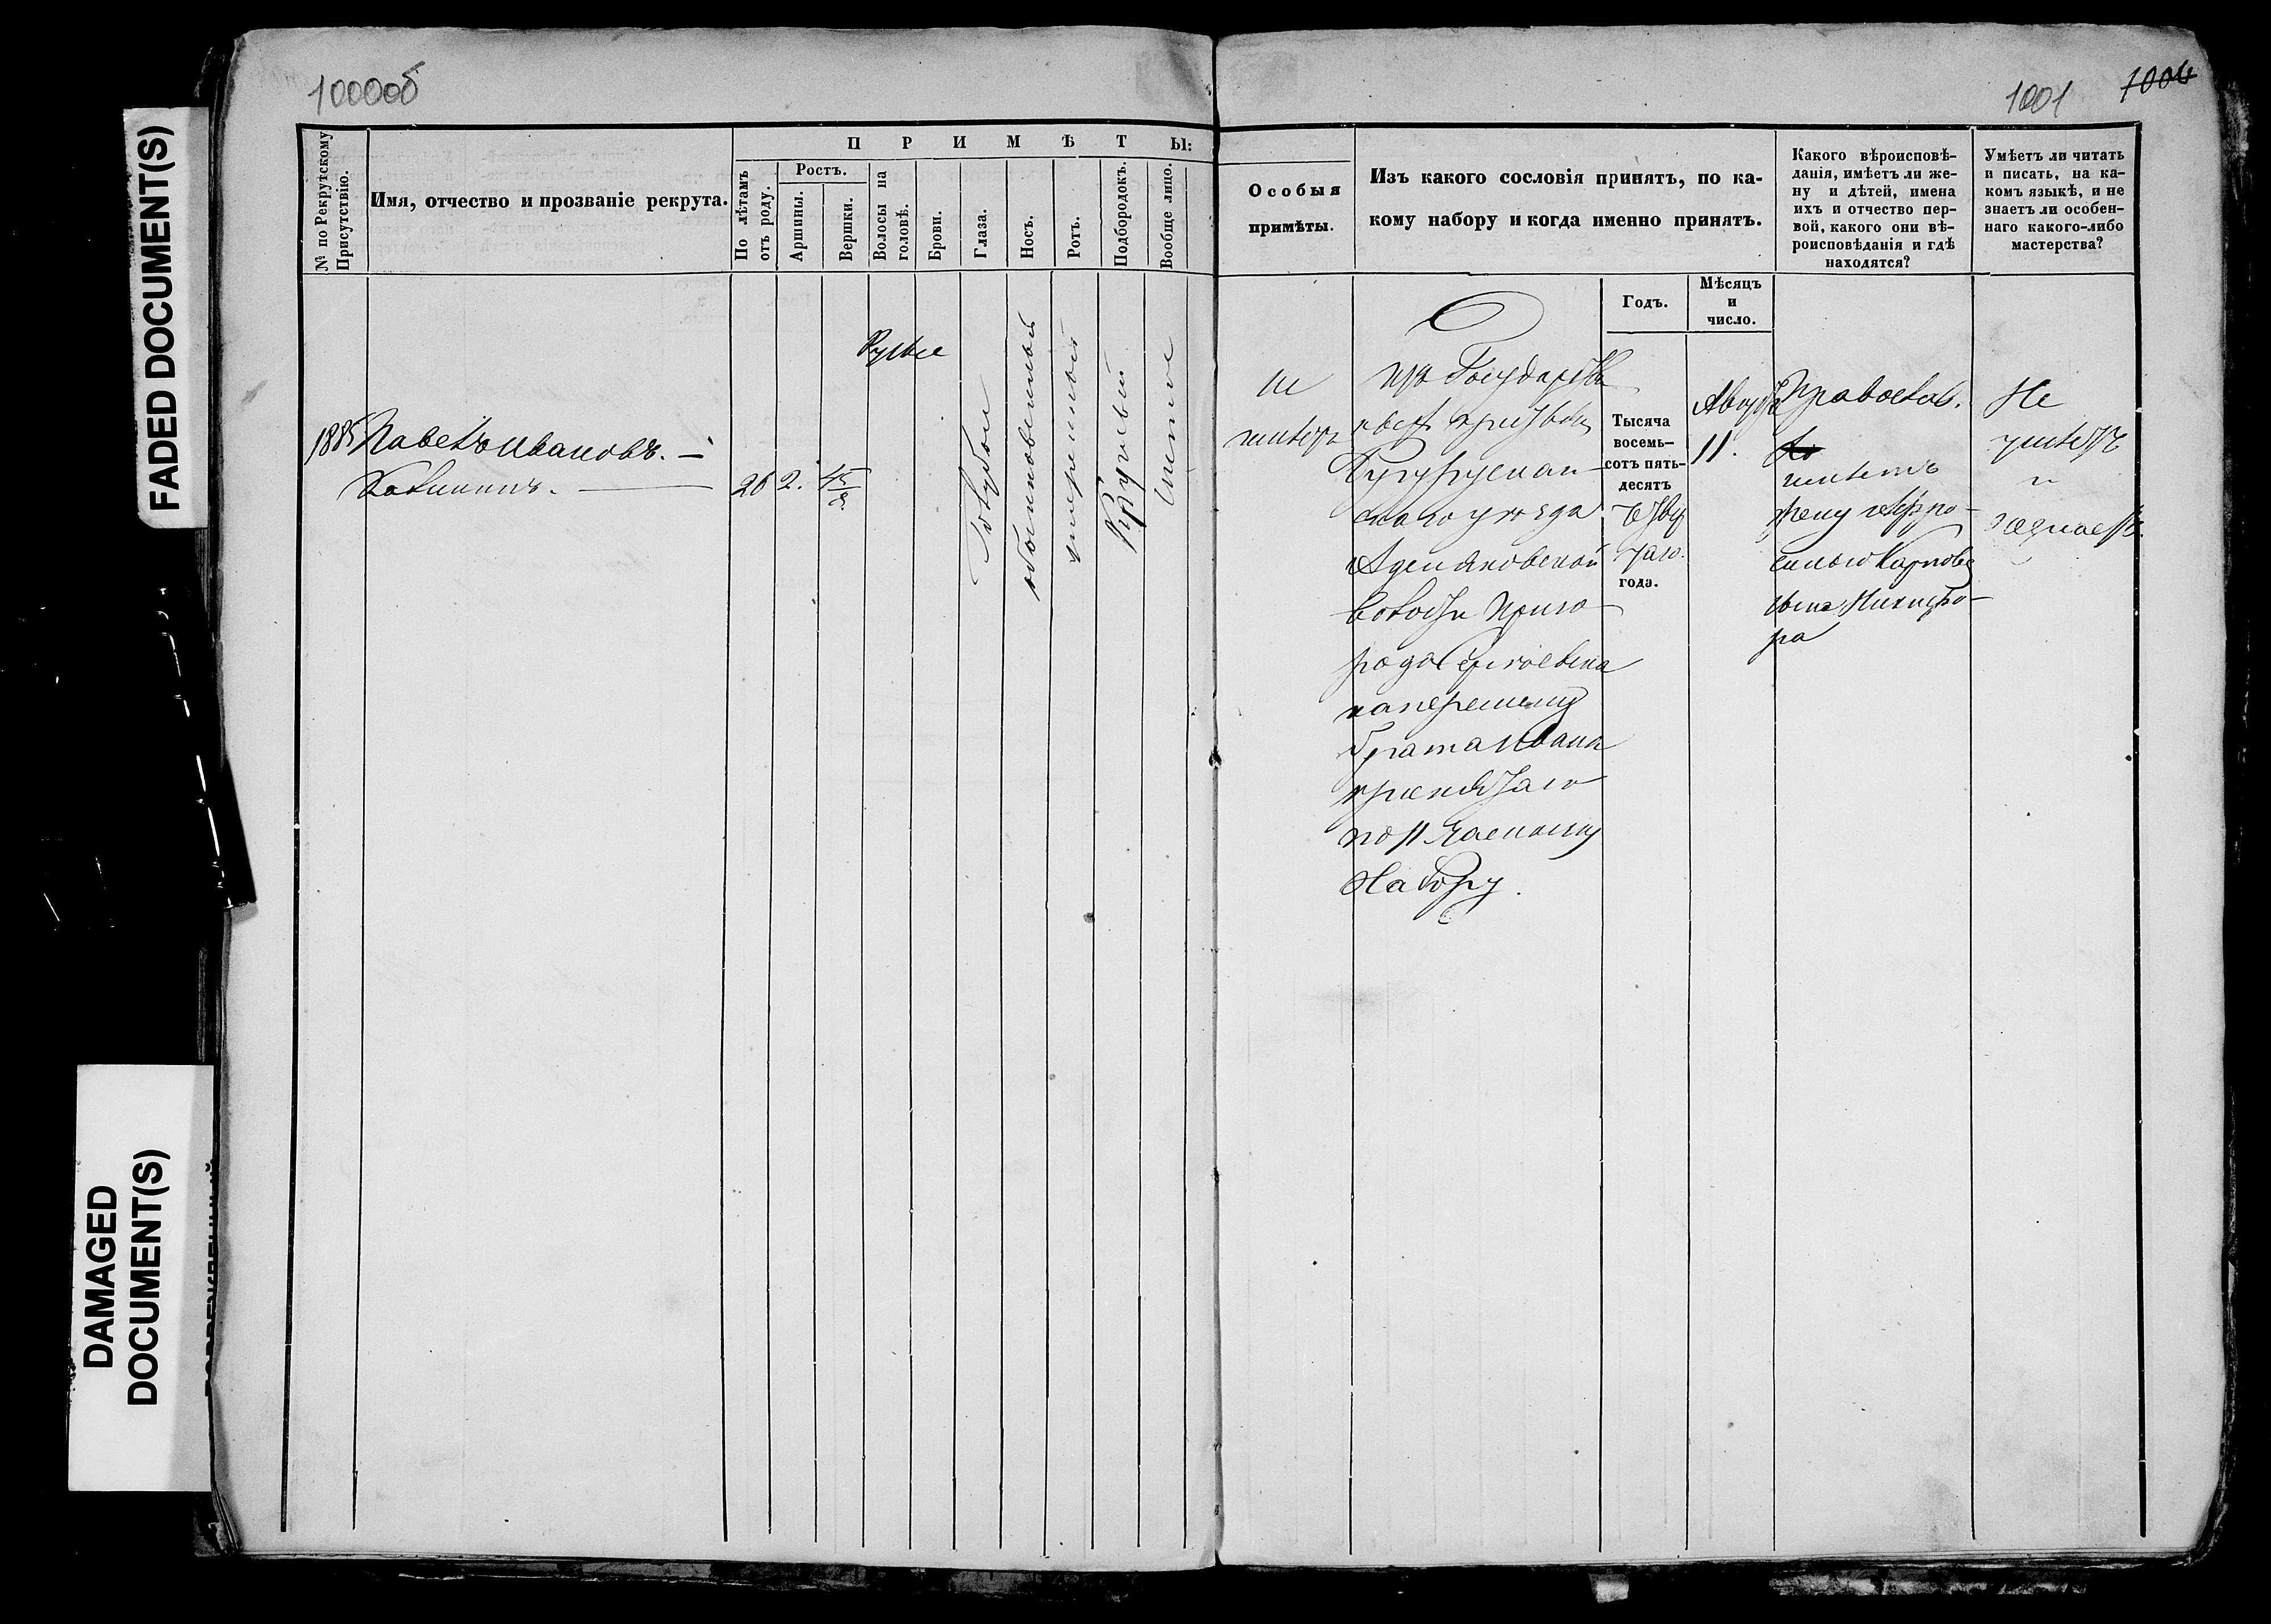 FADED DOCUMENT(S)
DAMAGED
DOCUMENT(S)
1000об
1001
1004
№ по Рекрутскому
Присутствію.
Имя, отчество и прозваніе рекрута.
ПРИМѢТЫ:
По лѣтамъ
отъ роду.
Ростъ.
Аршины.
Вершки.
Волосы на
головѣ.
Брови.
Глаза.
Носъ.
Ротъ.
Подбородокъ.
Вообще лицо.
Особыя
примѣты.
Изъ какого сословія принятъ, по ка-
кому набору и когда именно принятъ.
Годъ.
Мѣсяцъ
и
число.
Какого вѣроисповѣ-
данія, имѣетъ ли же-
ну и дѣтей, имена
ихъ и отчество пер-
вой, какого они вѣ-
роисповѣданія и гдѣ
находятся?
Умѣетъ ли читать
и писать, на ка-
комъ языкѣ, и не
знаетъ ли особен-
наго какого-либо
мастерства?
1885
Павелъ Ивановъ. —
26 2. 4 5/8
Русые
Голубые
обыкновенный
умеренный
Круглый
чистое
не
имѣетъ
изъ Государств
Бугуруслан-
скаго уѣзда
волости приго-
рода Сергіевска
брата Ивана
по 11 частному
Набору.
Тысяча
восемь-
сотъ пять-
десятъ
года.
Августа
11.
Православ.
имѣетъ
жену Афро-
синью Карпову
сына Никифо-
ра
Не
умѣетъ
и
не знаетъ.